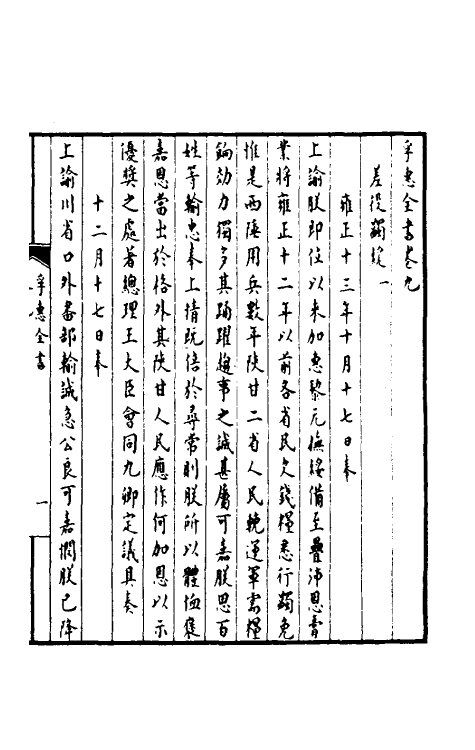 孚惠全書卷九
差役蠲緩一
雍正十三年十月十七日奉
上諭朕即位以來加惠黎元撫綏備至疊沛恩膏
業將雍正十二年以前各省民欠錢糧悉行蠲免
惟是西陲用兵數年陝甘二省人民輓運軍需糧
餉効力獨多其踴躍趨事之誠甚屬可嘉朕思百
姓等輸忠奉上情既倍於尋常則朕所以體恤襃
嘉恩當出於格外其陝甘人民應作何加恩以示
優獎之處著總理王大臣會同九卿定議具奏
十二月十七日奉
上諭川省口外番部輸誠急公良可嘉憫朕已降
孚惠全書
一